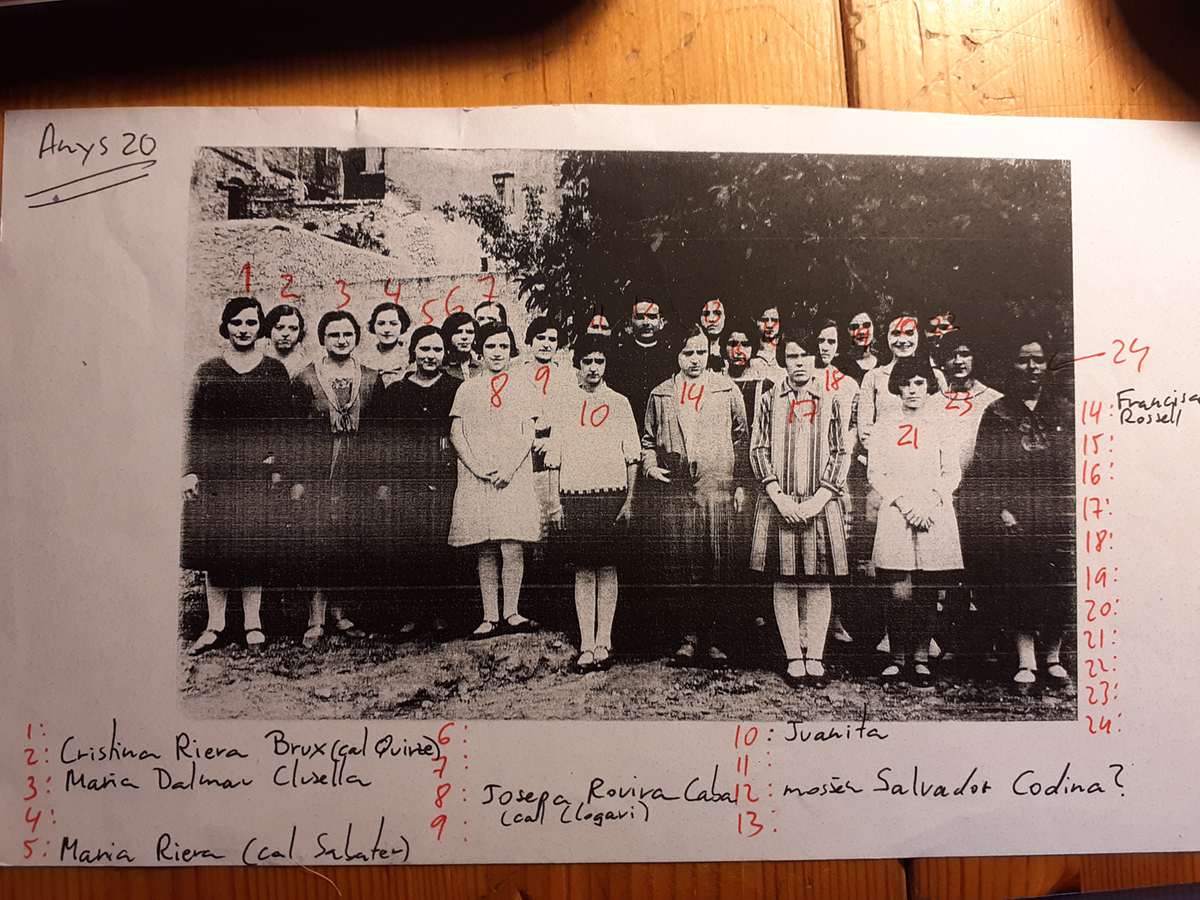 Anys 20
1 2 3 4 5 6 7
8 9 10 14 17 18 21 23
24
14: Francisca
Rossell
15:
16:
17:
18:
19:
20:
21:
22:
23:
24:
1:
2: Cristina Riera Brux (cal Quirze)
3: Maria Dalmau Clusella
4:
5: Maria Riera (cal Sabater)
6:
7:
8: Josepa Rovira Caba
(cal Llogari)
9:
10: Juanita
11:
12: mossèn Salvador Codina?
13: